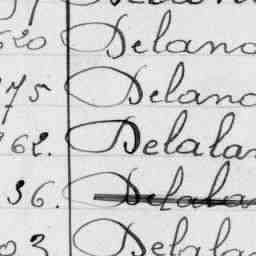 620 Delano
75 Delano
62. Delalan
36. Delala
03 Delala